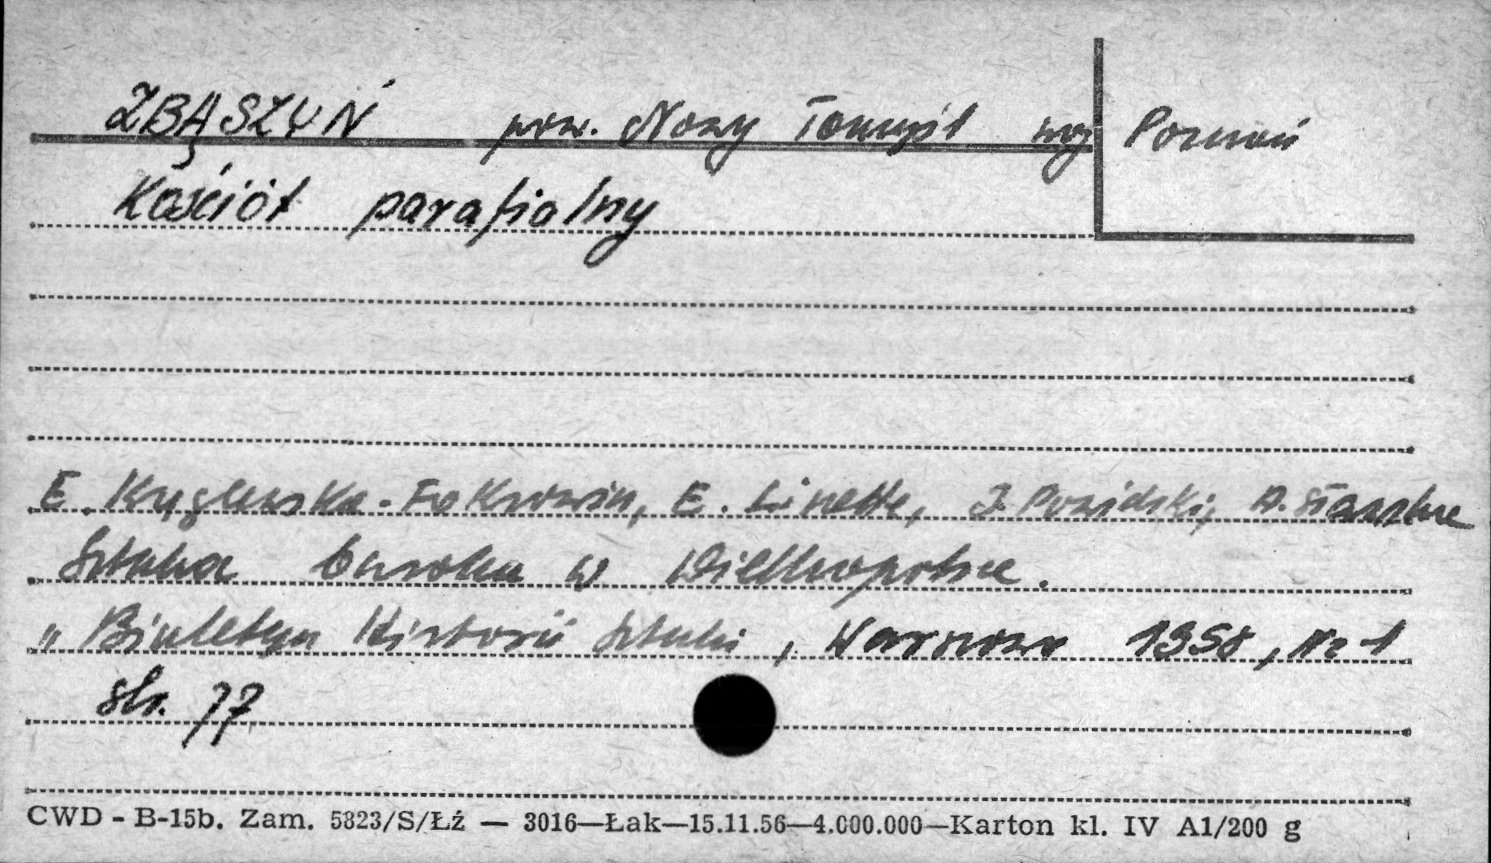 ZBĄSZYŃ pow. Nowy Tomyśl woj Poznań
Kościół parafialny
E. Kręglewska-Foksowicz, E. Linette, J. Powidzki, A. Sławska
Sztuka baroku w Wielkopolsce.
"Biuletyn Historii Sztuki, Warszawa 1958, Nr 1
str. 77
CWD - B-15b. Zam. 5823/S/Łź — 3016—Łak—15.11.56—4.000.000—Karton kl. IV A1/200 g